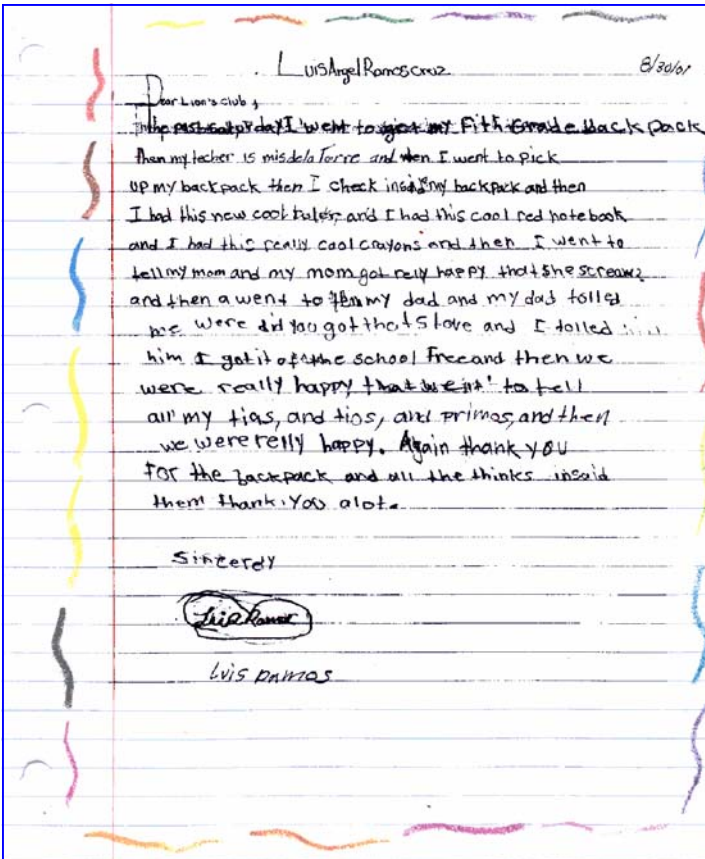 Luis Angel Ramos cruz 8/30/01
Dear Lion's club,
In the past saturday I went to get my Fith Grade back pack
then my techer is mis dela Torre and when I went to pick
up my backpack then I check insid my backpack and then
I had this new cool ruler, and I had this cool red notebook
and I had this really cool crayons and then I went to
tell my mom and my mom got rely happy that she scream
and then a went to tell my dad and my dad tolled
me were did you got that and I tolled
him I got it of the school Free and then we
were really happy that we went to tell
all my tias, and tios, and primos, and then
we were relly happy. Again thank you
For the backpack and all the thinks insaid
them thank you alot.
Sincerely
Luis Ramos
Luis Ramos